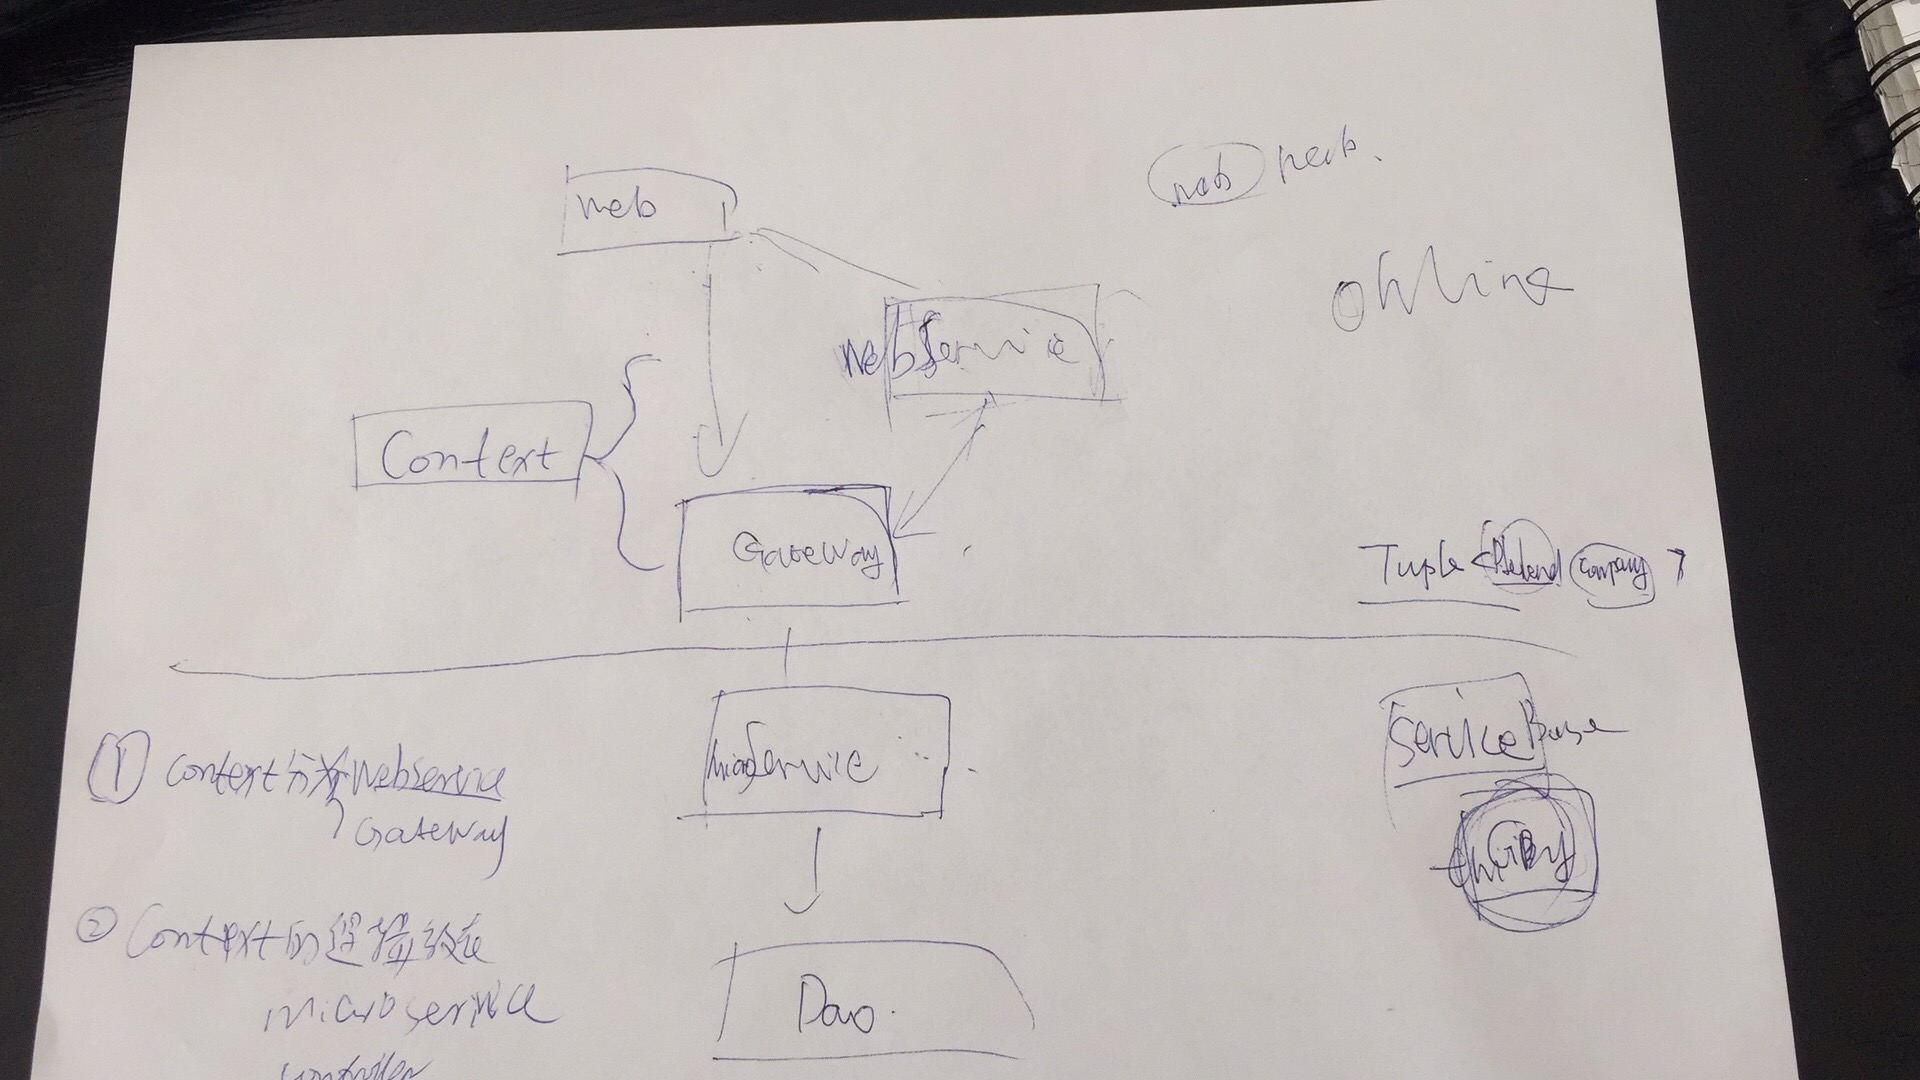 web
web
WebService
Context
Gateway
Tuple < Company >
microService
ServiceBase
① Context分为WebService
Gateway
② Context的逻辑放在
microservice
controller
Dao